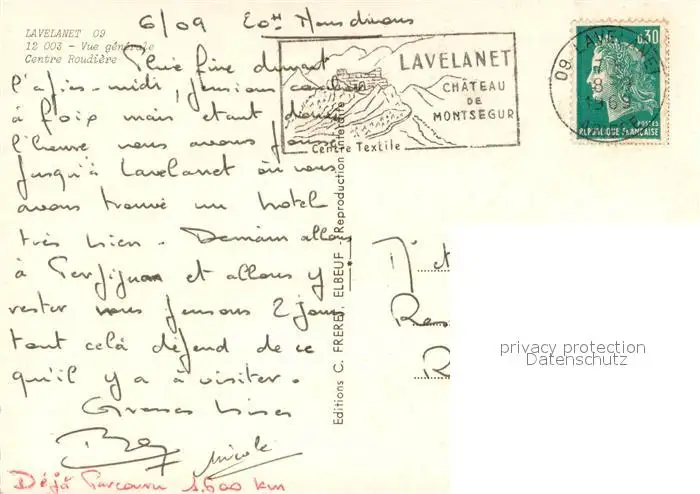 6/09
LAVELANET 09
12 003 - Vue générale
Centre Roudière
Pluie fine durant
l'après-midi, pensions
à Foix mais étant donné
l'heure nous avons poussé
jusqu'à Lavelanet où nous
avons trouvé un hotel
très bien. Demain allons
à Perpignan et allons y
rester nous pensons 2 jours
tout celà dépend de ce
qu'il y a à visiter.
Grosses bises
Nicole
Déjà Parcouru 1.600 km
LAVELANET
CHÂTEAU
DE
MONTSEGUR
Centre Textile
09 LAVELANET
0,30
POSTES
REPUBLIQUE FRANÇAISE
Editions C. FRERET, ELBEUF - Reproduction interdite
et
R
privacy protection
Datenschutz